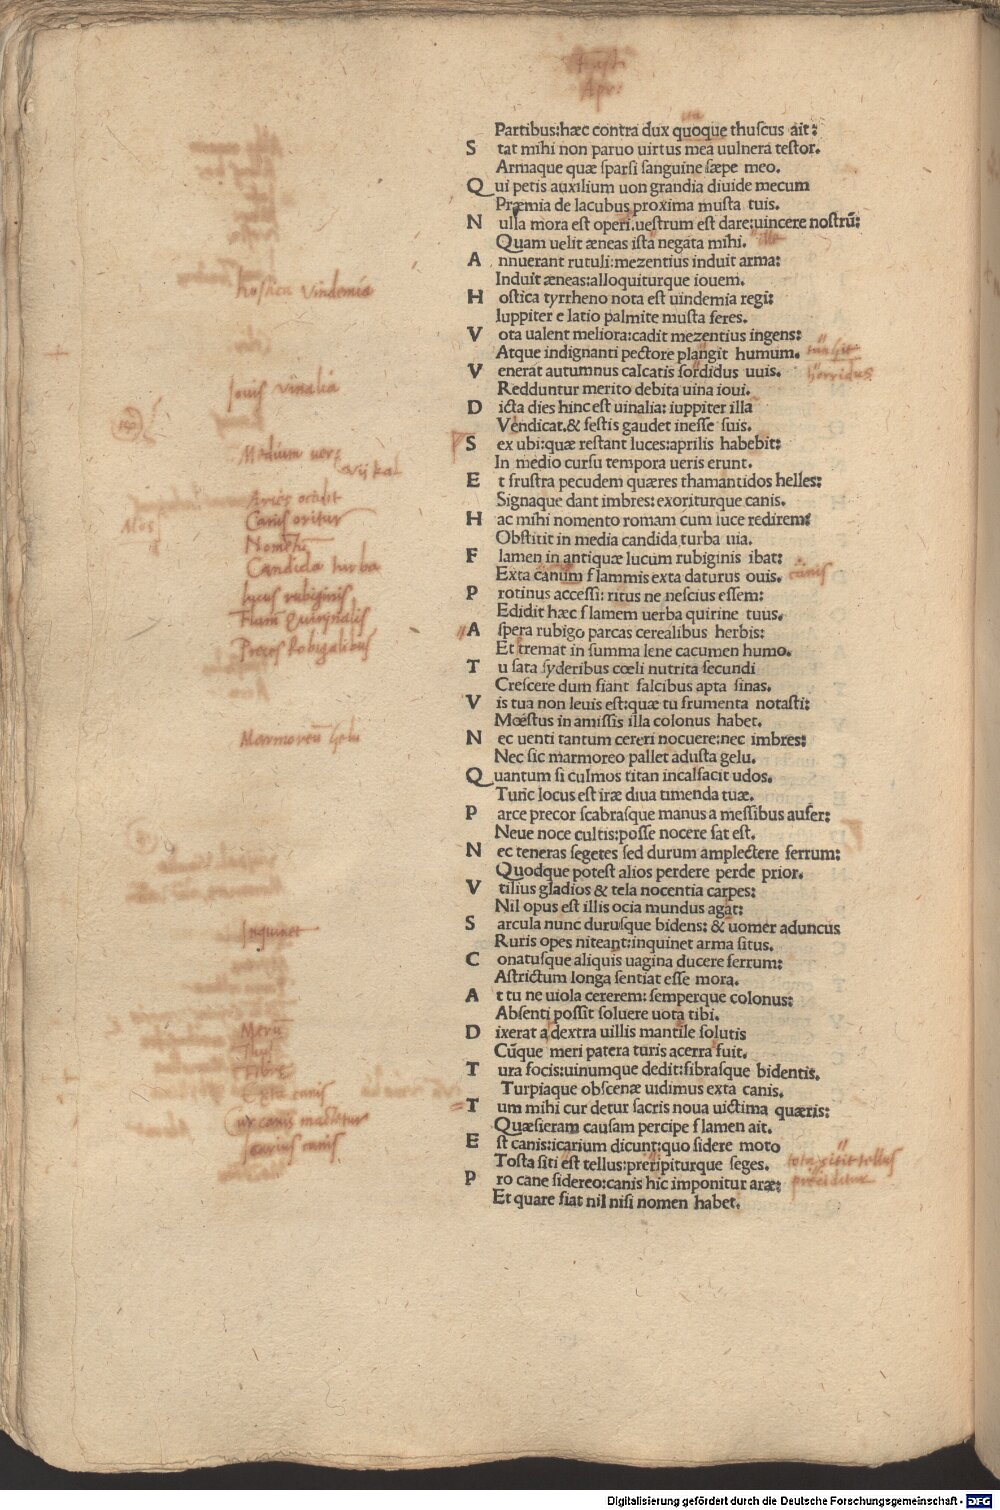 Fasti
Apr:
Partibus:hæc contra dux quoque thuscus ait:
S tat mihi non paruo uirtus mea uulnera testor.
Armaque quæ sparsi sanguine sæpe meo.
Q ui petis auxilium uon grandia diuide mecum
Præmia de lacubus proxima musta tuis.
N ulla mora est operi.uestrum est dare:uincere nostrū:
Quam uelit æneas ista negata mihi. illa
A nnuerant rutuli:mezentius induit arma:
Induit æneas:alloquiturque iouem.
hostica Vindemia
H ostica tyrrheno nota est uindemia regi:
Iuppiter e latio palmite musta feres.
V ota ualent meliora:cadit mezentius ingens:
Atque indignanti pectore plangit humum.
V enerat autumnus calcatis sordidus uuis. horridus
Iouis vinalia
Redduntur merito debita uina ioui.
D icta dies hinc est uinalia: iuppiter illa
Vendicat.& festis gaudet inesse suis.
S ex ubi:quæ restant luces:aprilis habebit:
Medium uer:
vij kal
In medio cursu tempora ueris erunt.
E t frustra pecudem quæres thamantidos helles:
Aries occidit
Signaque dant imbres:exoriturque canis.
Canis oritur
H ac mihi nomento romam cum luce redirem:
Nomētū
Obstitit in media candida turba uia.
Candida turba
F lamen in antiquæ lucum rubiginis ibat:
Exta canum flammis exta daturus ouis. canis
lucus rubiginis
P rotinus accessi: ritus ne nescius essem:
Flam Quirinalis
Edidit hæc flamem uerba quirine tuus.
A spera rubigo parcas cerealibus herbis:
Preces Robigalibus
Et tremat in summa lene cacumen humo.
T u sata syderibus cœli nutrita secundi
Crescere dum fiant falcibus apta sinas.
V is tua non leuis est:quæ tu frumenta notasti:
Mœstus in amissis illa colonus habet.
Marmoreū Gelu
N ec uenti tantum cereri nocuere:nec imbres:
Nec sic marmoreo pallet adusta gelu.
Q uantum si culmos titan incalfacit udos.
Tunc locus est iræ diua timenda tuæ.
P arce precor scabrasque manus a messibus aufer:
Neue noce cultis:posse nocere sat est.
N ec teneras segetes sed durum amplectere ferrum:
Quodque potest alios perdere perde prior.
V tilius gladios & tela nocentia carpes:
Nil opus est illis ocia mundus agat:
S arcula nunc durusque bidens: & uomer aduncus
Inquinet
Ruris opes niteant:inquinet arma situs.
C onatusque aliquis uagina ducere ferrum:
Astrictum longa sentiat esse mora.
A t tu ne uiola cererem: semperque colonus:
Absenti possit soluere uota tibi.
D ixerat a dextra uillis mantile solutis
Merū
Cūque meri patera turis acerra fuit.
Thus
T ura focis:uinumque dedit:fibrasque bidentis.
Fibre
Turpiaque obscenæ uidimus exta canis.
Exta canis
T um mihi cur detur sacris noua uictima quæris:
Cur canis mactetur
Quæsieram causam percipe flamen ait.
E st canis:icarium dicunt:quo sidere moto
Icarius canis
Tosta siti est tellus:preripiturque seges. tota sitit tellus
P ro cane sidereo:canis hic imponitur aræ: præciditur
Et quare fiat nil nisi nomen habet.
Digitalisierung gefördert durch die Deutsche Forschungsgemeinschaft - DFG